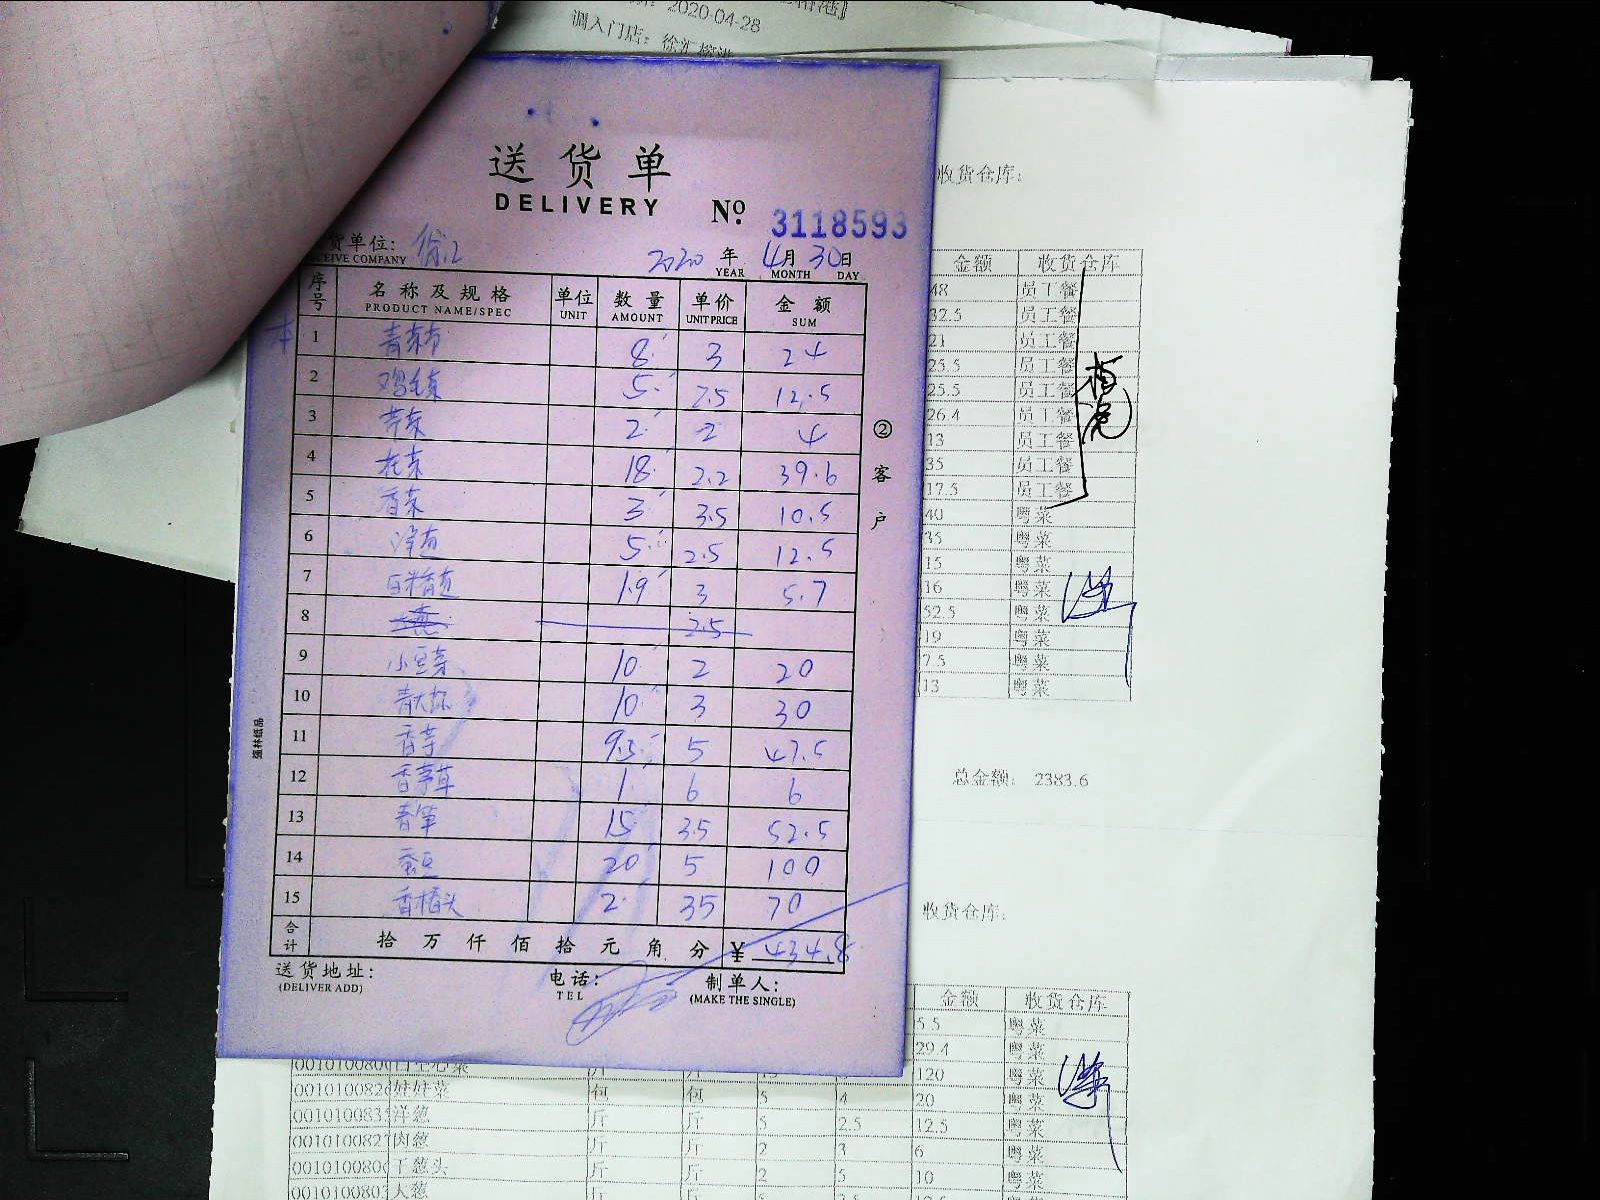 2020-04-28
调入门店：徐汇
送货单
DELIVERY
№ 3118593
货单位：徐汇
CEIVE COMPANY
2020 年 4 月 30 日
YEAR MONTH DAY
序号 名称及规格 单位 数量 单价 金额
PRODUCT NAME/SPEC UNIT AMOUNT UNIT PRICE SUM
1 8 3 24
2 鸡毛菜 5 2.5 12.5
3 芹菜 2 2 4
4 花菜 18 2.2 39.6
5 香菜 3 3.5 10.5
6 洋葱 5 2.5 12.5
7 1.9 3 5.7
8 2.5
9 小豆芽 10 2 20
10 青大椒 10 3 30
11 香芋 9.5 5 47.5
12 香茅草 1 6 6
13 青笋 15 3.5 52.5
14 蚕豆 20 5 100
15 香椿头 2 35 70
合计 拾 万 仟 佰 拾 元 角 分 ¥ 434.8
送货地址：
(DELIVER ADD)
电话：
TEL
制单人：
(MAKE THE SINGLE)
②客户
强林纸品
收货仓库：
金额 收货仓库
48 员工餐
32.5 员工餐
21 员工餐
25.5 员工餐
25.5 员工餐
26.4 员工餐
13 员工餐
35 员工餐
17.5 员工餐
40 粤菜
35 粤菜
15 粤菜
16 粤菜
52.5 粤菜
19 粤菜
7.5 粤菜
13 粤菜
总金额： 2383.6
收货仓库：
金额 收货仓库
5.5 粤菜
29.4 粤菜
120 粤菜
娃娃菜 包 包 5 4 20 粤菜
洋葱 斤 斤 5 2.5 12.5 粤菜
肉葱 斤 斤 2 3 6 粤菜
干葱头 斤 斤 2 5 10 粤菜
大葱